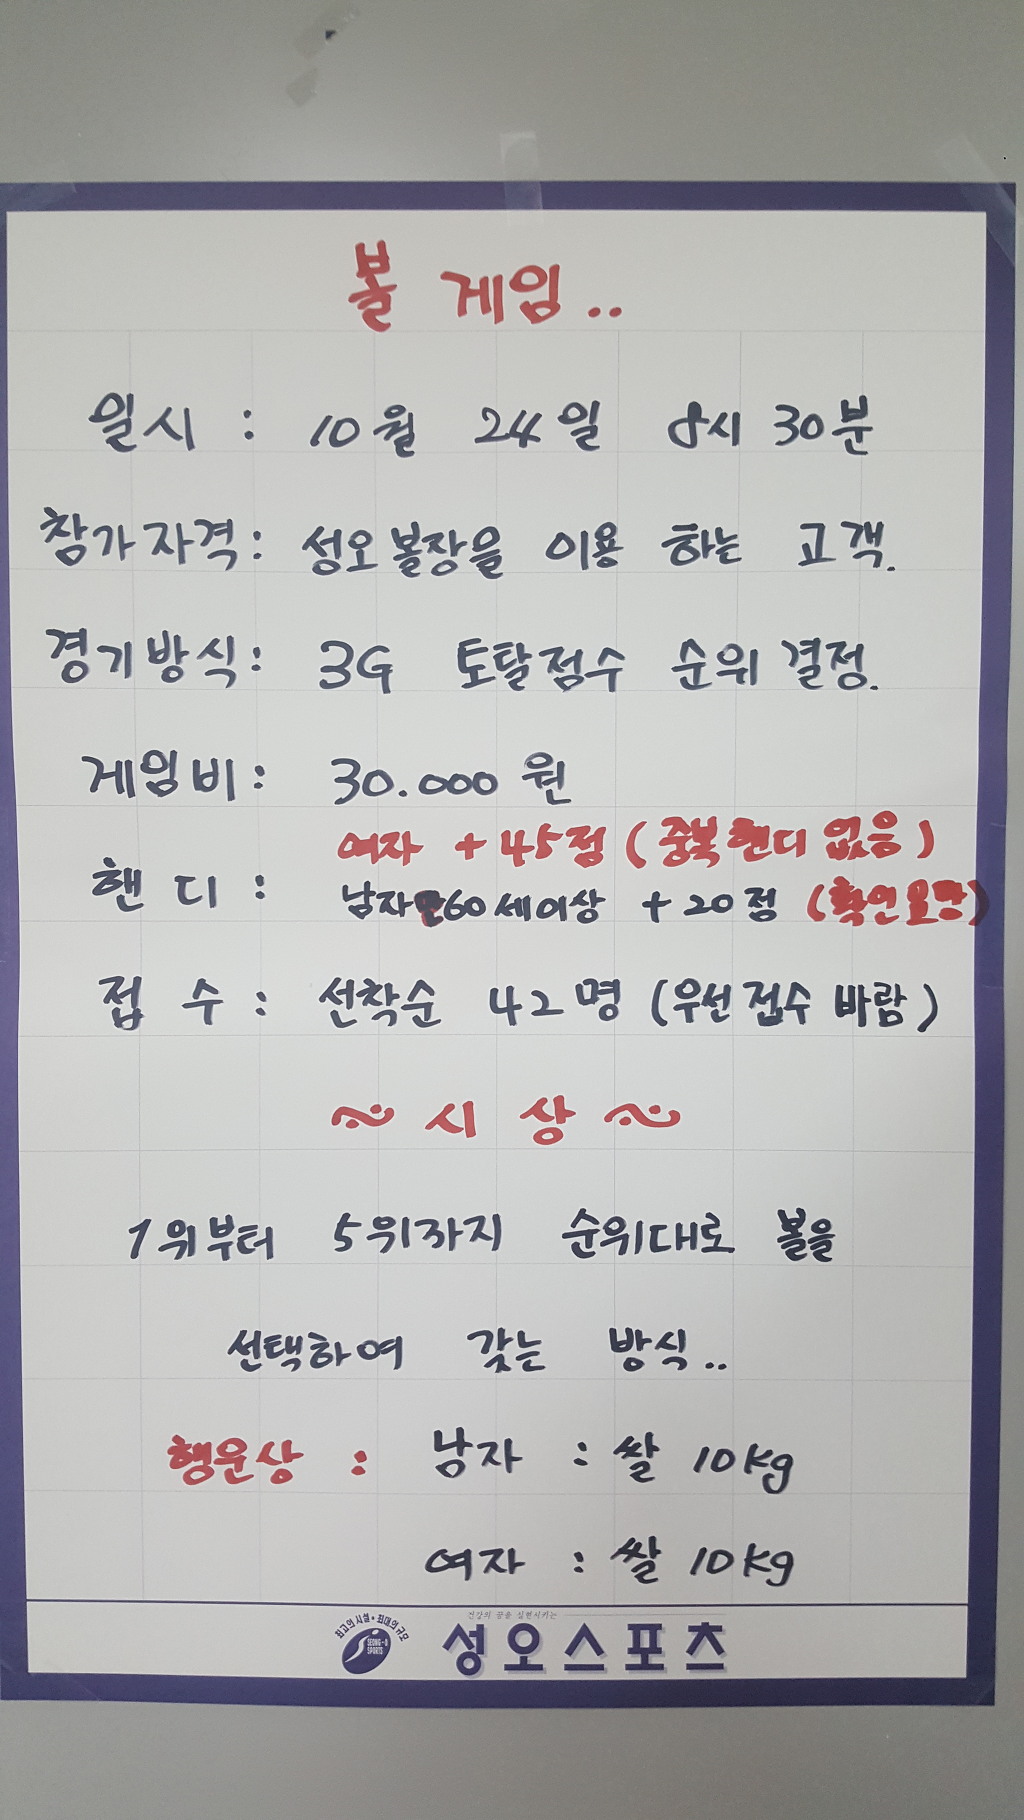 볼 게임..
일시 : 10월 24일 8시 30분
참가자격 : 성오볼장을 이용 하는 고객.
경기방식 : 3G 토탈점수 순위 결정.
게임비 : 30.000 원
여자 + 45점 (중복핸디 없음)
핸 디 :
남자 60세이상 + 20점 (확인요망)
접 수 : 선착순 42명 (우선 접수 바람)
~ 시 상 ~
1위부터 5위까지 순위대로 볼을
선택하여 갖는 방식..
행운상 : 남자 : 쌀 10kg
여자 : 쌀 10kg
건강의 꿈을 실현시키는
최고의 시설·최대의 규모
SEONG-O
SPORTS
성오스포츠